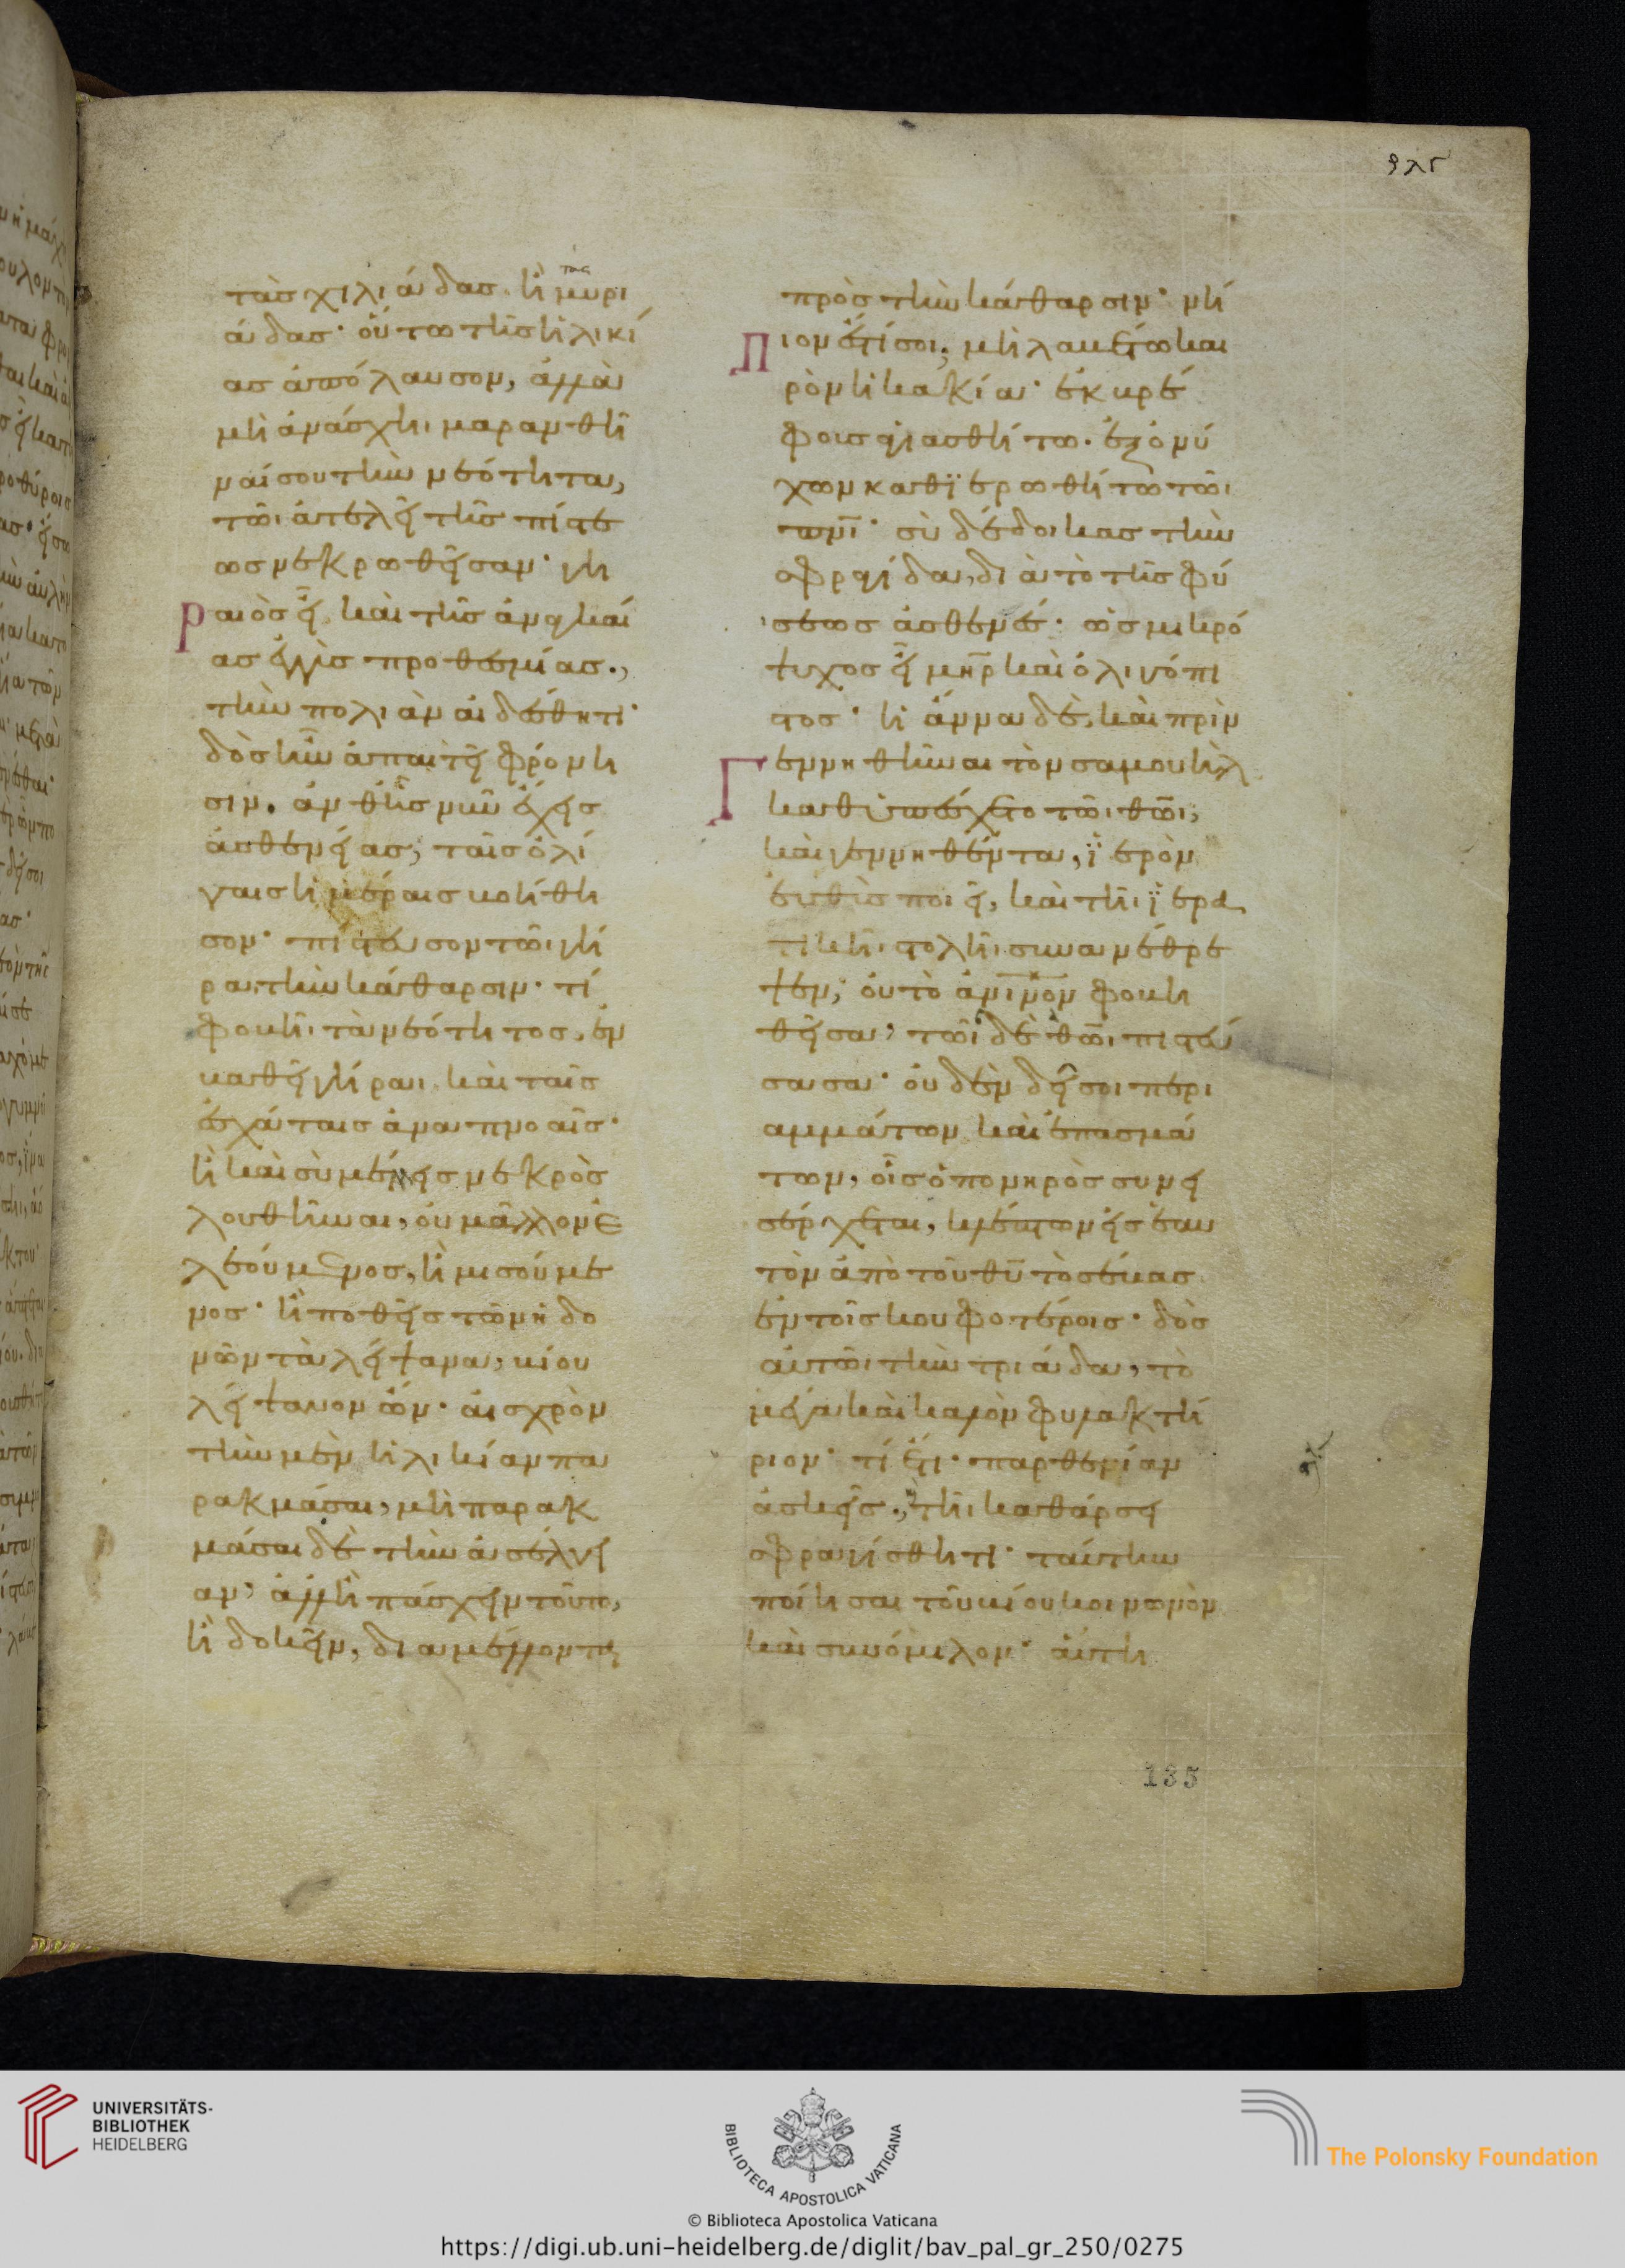 τὰς χιλιάδας. ἢ μυρι
άδας· οὕτω τῆς ἡλικί
ας ἀπόλαυσον, ἀλλὰ
μὴ ἀνάσχηι μαρανθῆ
ναί σου τὴν νεότητα,
τῶι ἀτελεῖ τῆς πίστε
ως νεκρωθεῖσαν· γη
ραιὸς εἶ, καὶ τῆς ἀναγκαί
ας ἐγγὺς προθεσμίας.,
τὴν πολιὰν αἰδέσθητι·
δὸς ἣν ἀπαιτεῖ φρόνη
σιν. ἀνθ' ἧς νῦν ἔχεις
ἀσθενείας, ταῖς ὀλί
γαις ἡμέραις βοήθη
σον· πίστευσον τῶι γή
ραι τὴν κάθαρσιν· τί
φοβῆι τὰ νεότητος, ἐν
βαθεῖ γήραι καὶ ταῖς
ἐσχάταις ἀναπνοαῖς·
ἢ καὶ σὺ μένεις νεκρὸς
λουθῆναι, οὐ μᾶλλον ἐ
λεούμενος, ἢ μισούμε
νος· ἢ ποθεῖς τῶν ἡδο
νῶν τὰ λείψανα, βίου
λείψανον ὤν· αἰσχρὸν
τὴν μὲν ἡλικίαν πα
ρακμάσαι, μὴ παρακ
μάσαι δὲ τὴν ἀσέλγει
αν, ἀλλ' ἢ πάσχειν τοῦτο,
ἢ δοκεῖν, διαμέλλοντας
πρὸς τὴν κάθαρσιν· νή
πιόν ἐστί σοι, μὴ λαβέτω και
ρὸν ἡ κακία· ἐκ βρέ
φους ἁγιασθήτω. ἐξ ὀνύ
χων καθϊερωθήτω τῶι
πνι· σὺ δέδοικας τὴν
σφραγίδα, διὰ τὸ τῆς φύ
σεως ἀσθενές· ὡς μικρό
ψυχος εἶ μηρ καὶ ὀλιγόπι
στος· ἡ ἄννα δὲ, καὶ πρὶν
γεννηθῆναι τὸν σαμουὴλ
καθυπέσχετο τῶι θῶι,
καὶ γεννηθέντα, ϊερὸν
εὐθὺς ποιεῖ, καὶ τῆι ϊερα
τικῆι στολῆι συνανέθρε
ψεν, οὐ τὸ ἀνινον φοβη
θεῖσα, τῶι δὲ θῶι πιστεύ
σασα· οὐδὲν δεῖ σοι περι
αμμάτων καὶ ἐπασμά
των, οἷς ὁ πονηρὸς συνει
σέρχεται, κλέπτων εἰς ἑαυ
τὸν ἀπὸ τοῦ θυ τὸ σέβας
ἐν τοῖς κουφοτέροις· δὸς
αὐτῶι τὴν τριάδα, τὸ
μέγα καὶ καλὸν φυλακτή
ριον· τί ἔτι· παρθενίαν
ἀσκεῖς., τῆι καθάρσει
σφραγίσθητι· ταύτην
ποίησαι τοῦ βίου κοινωνὸν
καὶ συνόμιλον· αὕτη
135
UNIVERSITÄTS-
BIBLIOTHEK
HEIDELBERG
BIBLIOTECA APOSTOLICA VATICANA
The Polonsky Foundation
© Biblioteca Apostolica Vaticana
https://digi.ub.uni-heidelberg.de/diglit/bav_pal_gr_250/0275